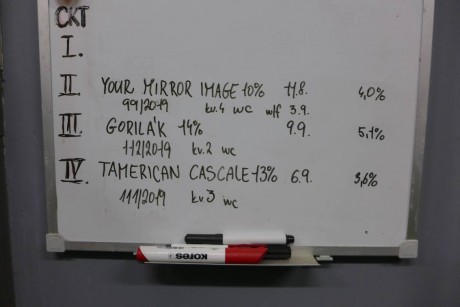 CKT
I.
II. YOUR MIRROR IMAGE 10% 11.8. 4,0%
99/2019 kv.4 wc wlf 3.9.
III. GORILÁK 14% 9.9. 5,1%
112/2019 kv.2 wc
IV. TAMERICAN CASCALE 13% 6.9. 3,6%
111/2019 kv3 wc
kores